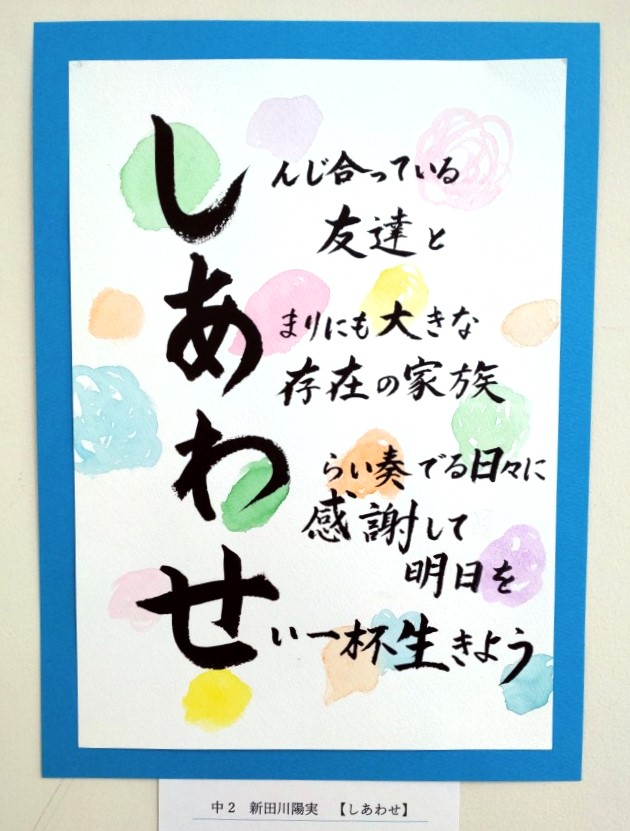 しんじ合っている
友達と
あまりにも大きな
存在の家族
わらい奏でる日々に
感謝して
明日を
せい一杯生きよう
中2 新田川陽実 【しあわせ】